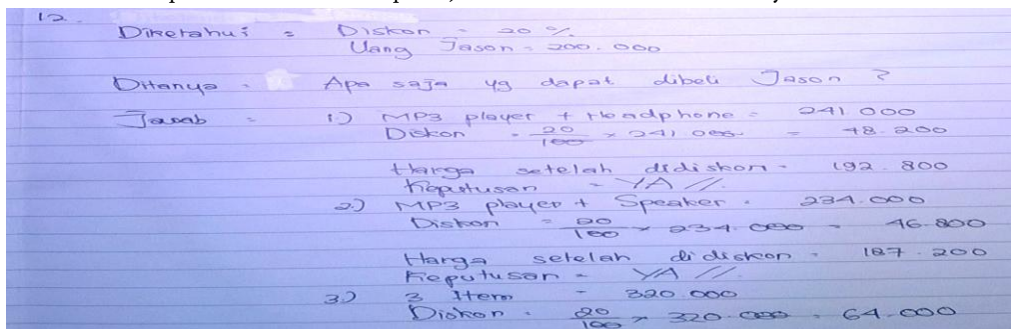 12.
Diketahui = Diskon = 20 %
Uang Jason = 200.000
Ditanya = Apa saja yg dapat dibeli Jason ?
Jawab = 1.) MP3 player + Headphone = 241.000
Diskon = 20/100 × 241.000 = 48.200
Harga setelah didiskon = 192.800
Keputusan = YA //.
2.) MP3 player + Speaker = 234.000
Diskon = 20/100 × 234.000 = 46.800
Harga setelah didiskon = 187.200
Keputusan = YA //.
3.) 3 Item = 320.000
Diskon = 20/100 × 320.000 = 64.000